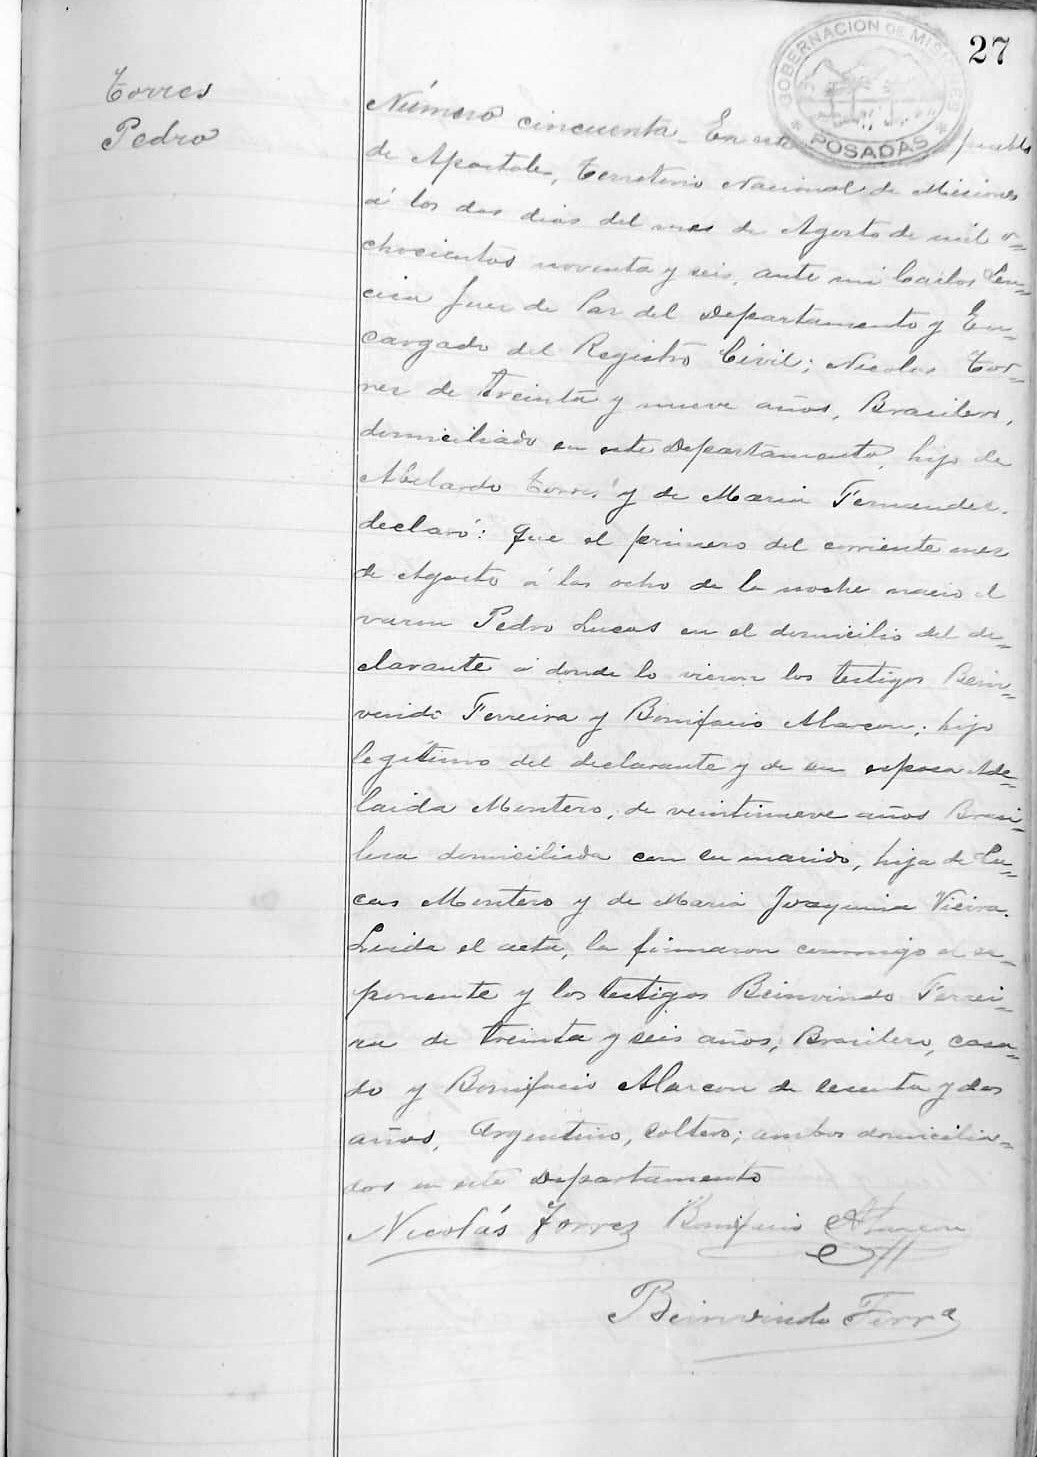 27
GOBERNACION DE MISIONES
* POSADAS *
Torres
Pedro
Número cincuenta. En este pueblo
de Apostoles, Territorio Nacional de Misiones
á los dos dias del mes de Agosto de mil o=
chocientos noventa y seis, ante mi Carlos Len=
cina Juez de Paz del Departamento y En=
cargado del Registro Civil; Nicolas Tor=
res de treinta y nueve años, Brasilero,
domiciliado en este Departamento, hijo de
Abelardo Torres y de Maria Fernandez.
declaró: que el primero del corriente mes
de Agosto á las ocho de la noche nacio el
varon Pedro Lucas en el domicilio del de=
clarante á donde lo vieron los testigos Bein=
vindo Ferreira y Bonifacio Alarcon; hijo
legítimo del declarante y de su esposa Ade=
laida Montero, de veintinueve años Brasi=
lera domiciliada con su marido, hija de Lu=
cas Montero y de Maria Joaquina Vieira.
Leida el acta, la firmaron conmigo el es=
ponente y los testigos Beinvindo Ferrei=
ra de treinta y seis años, Brasilero, casa=
do y Bonifacio Alarcon de sesenta y dos
años, Argentino, soltero; ambos domicilia=
dos en este Departamento
Nicolás Torres Bonifacio Alarcon
Beinvindo Ferra